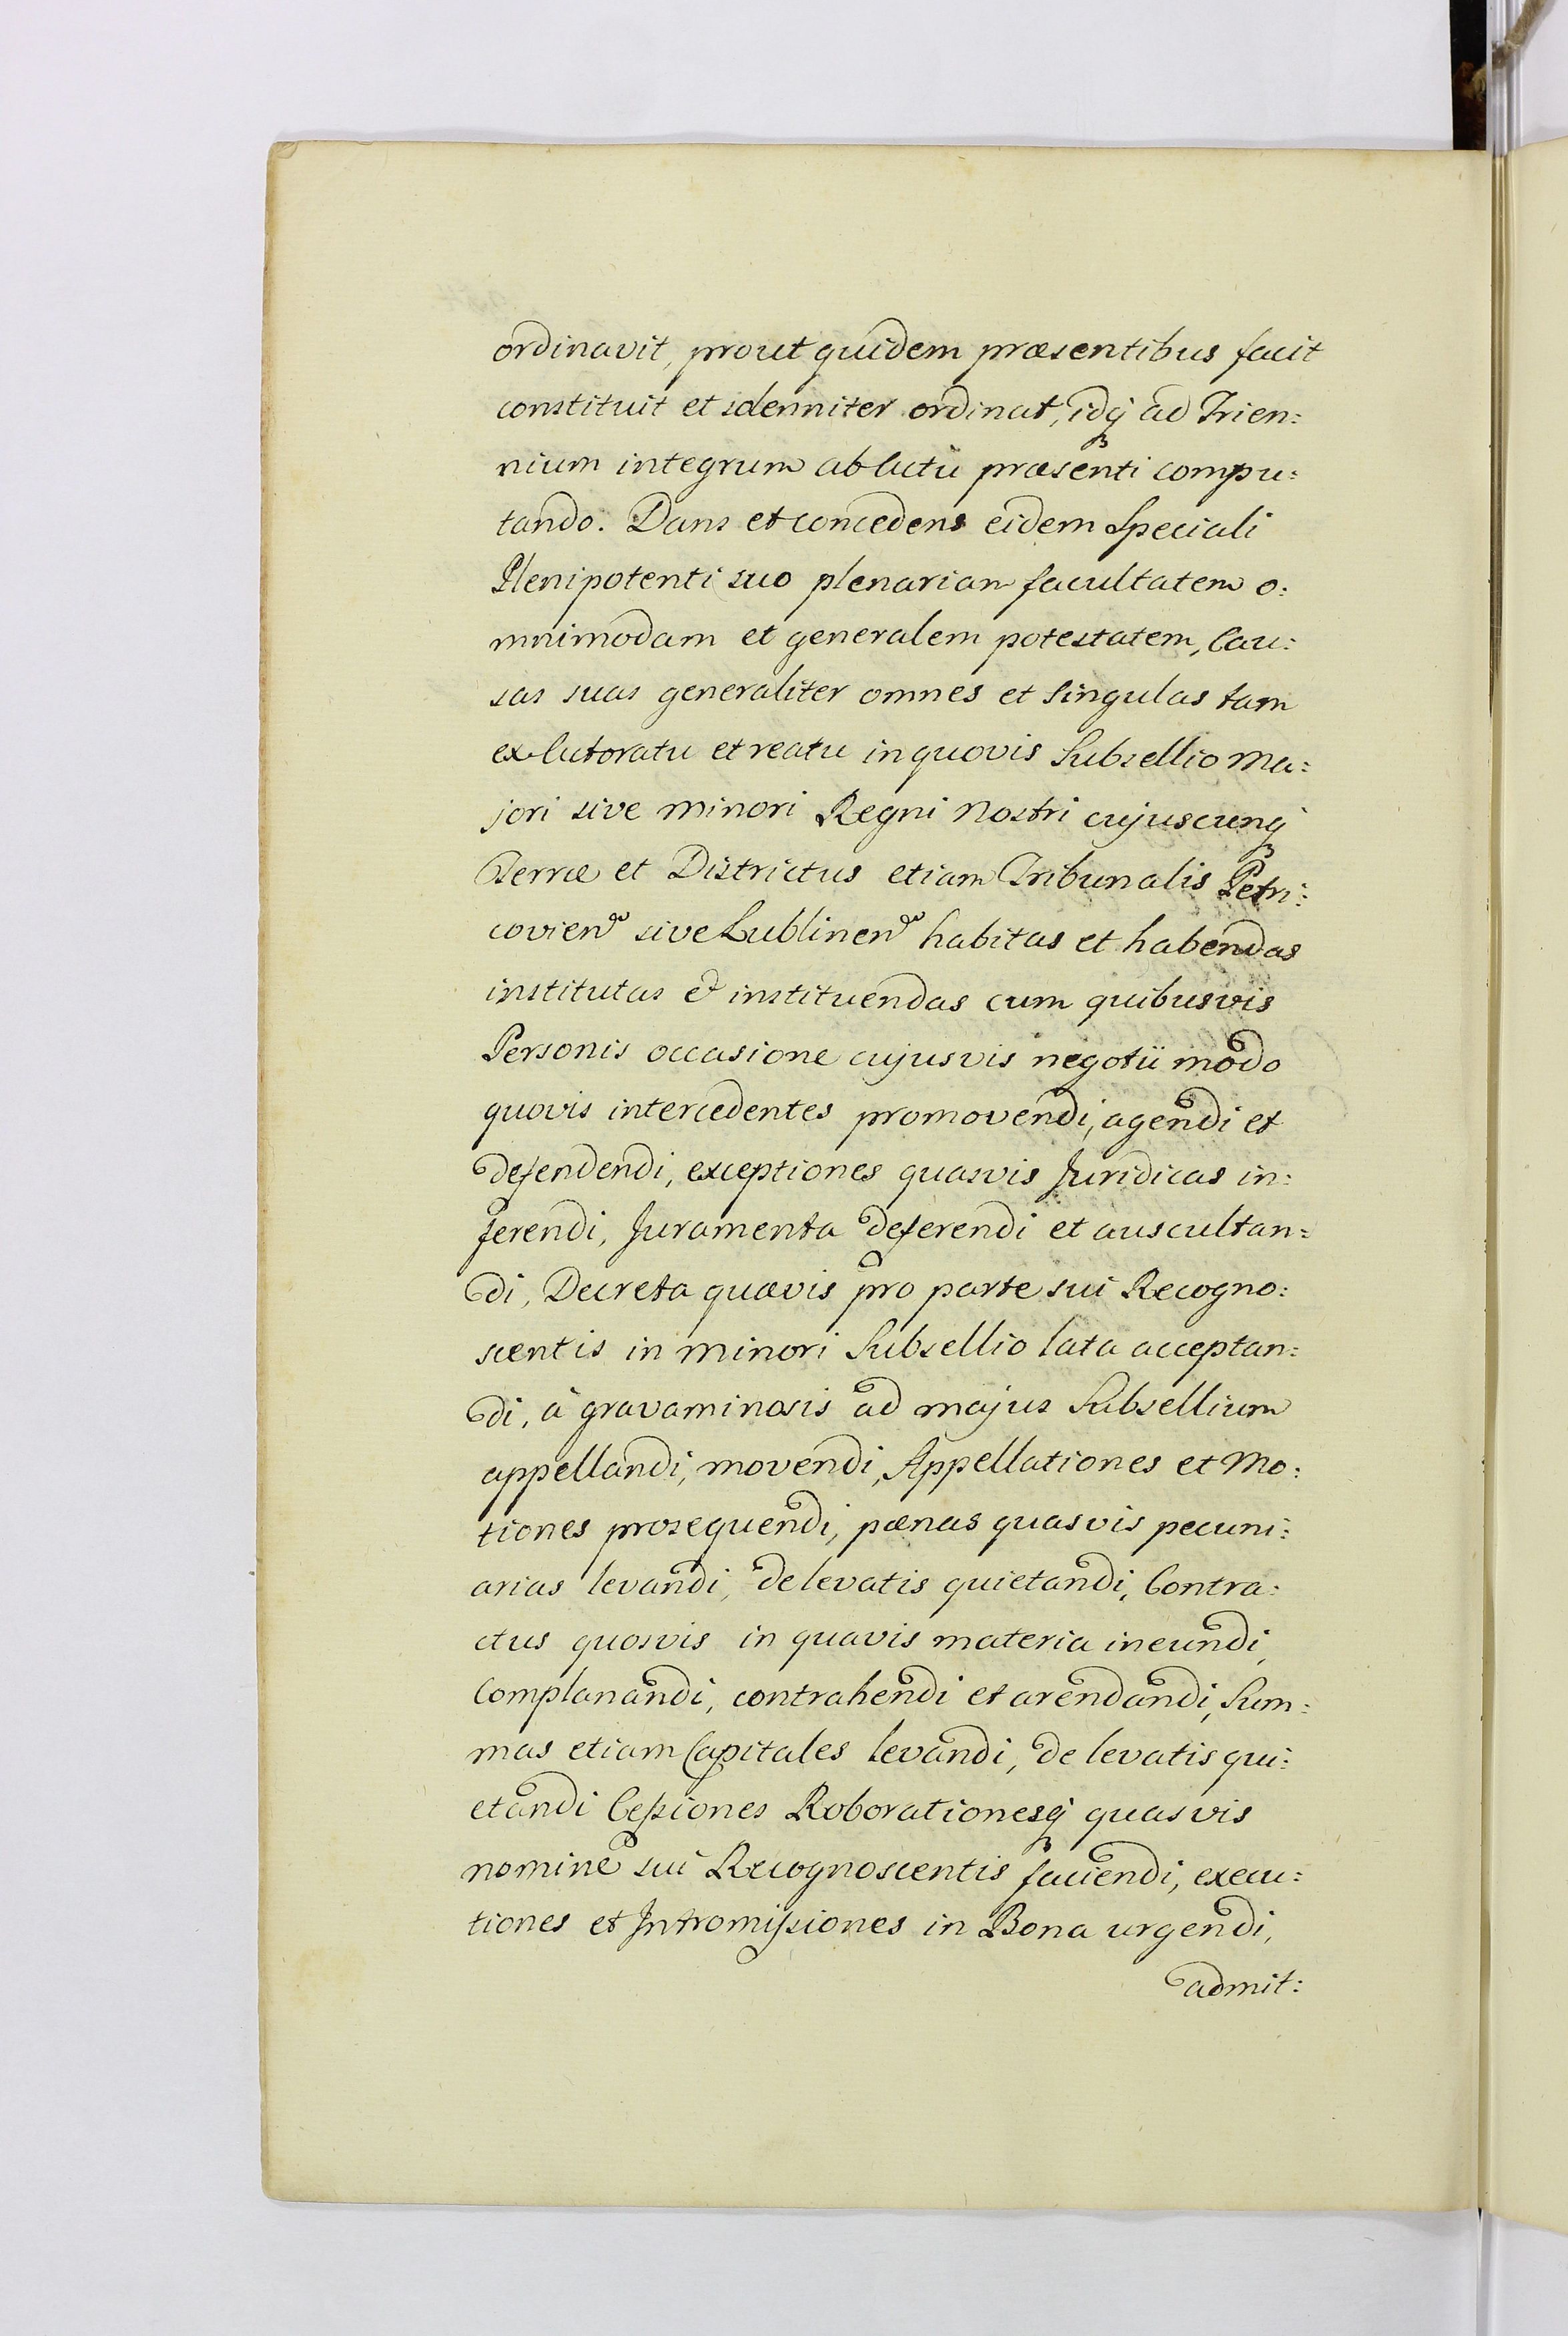 ordinavit, prout quidem præsentibus facit
constituit et solenniter ordinat, idq́ ad Trien:
nium integrum ab Actu præsenti compu:
tando. Dans et concedens eidem Speciali
Plenipotenti suo plenariam facultatem o:
mnimodam et generalem potestatem, Cau:
sas suas generaliter omnes et singulas tam
ex Actoratu et reatu in quovis Subsellio Ma:
jori sive minori Regni Nostri cujuscunq́
Terræ et Districtus etiam Tribunalis Petri:
covien sive Lublinen habitas et habendas
institutas & instituendas cum quibusvis
Personis occasione cujusvis negotii modo
quovis intercedentes promovendi, agendi et
defendendi, exceptiones quasvis Juridicas in:
ferendi, Juramenta deferendi et auscultan:
di, Decreta quævis pro parte sui Recogno:
scentis in minori Subsellio lata acceptan:
di, à gravaminosis ad majus Subsellium
appellandi, movendi, Appellationes et Mo:
tiones prosequendi, pænas quasvis pecuni:
arias levandi, de levatis quietandi, Contra:
ctus quosvis in quavis materia ineundi,
Complanandi, contrahendi et arendandi, Sum:
mas etiam Capitales levandi, de levatis qui:
etandi Cessiones Roborationesq́ quasvis
nomine sui Recognoscentis faciendi, execu:
tiones et Intromissiones in Bona urgendi,
admit: